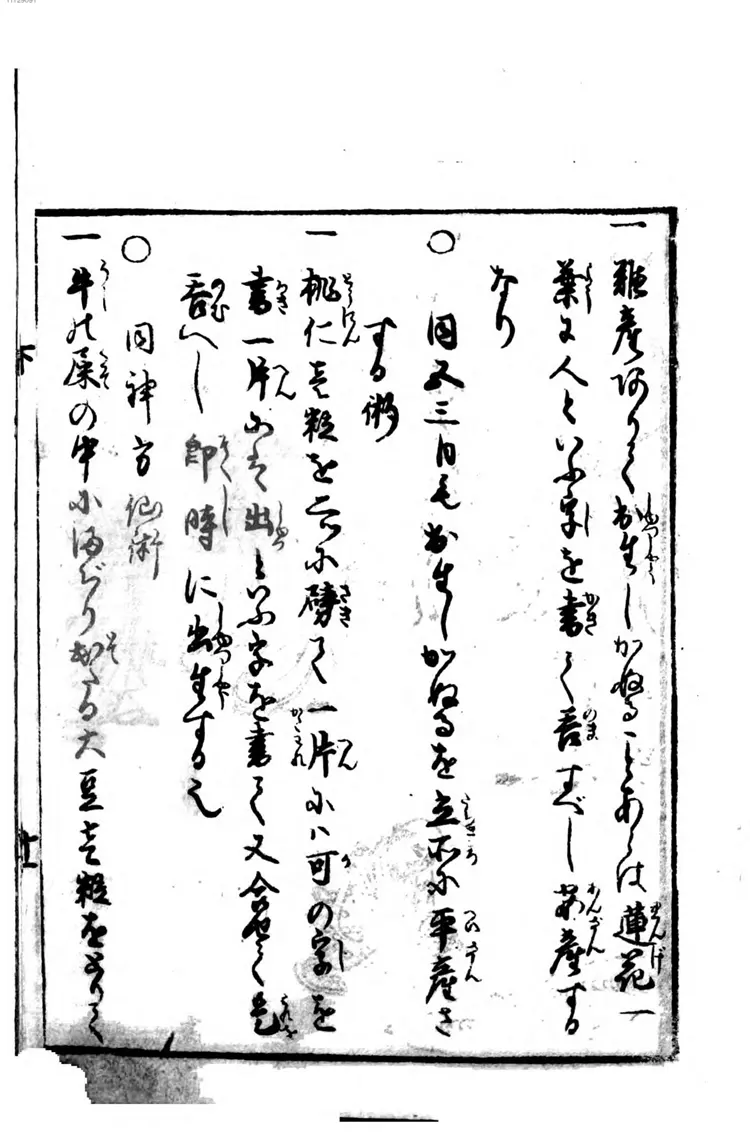 一難産にて出生しかぬることあらは蓮花一
葉に人といふ字を書て呑すべし安産する
なり
○同又三日も出生しかぬるを立所に平産さ
する術
一桃仁壱粒を二に劈て一片には可の字を
書一片には出といふ字を書て又合せて是
呑へし即時に出生する也
○同神方仙術
一牛の屎の中にまじり出たる大豆壱粒をとりて
下
十一